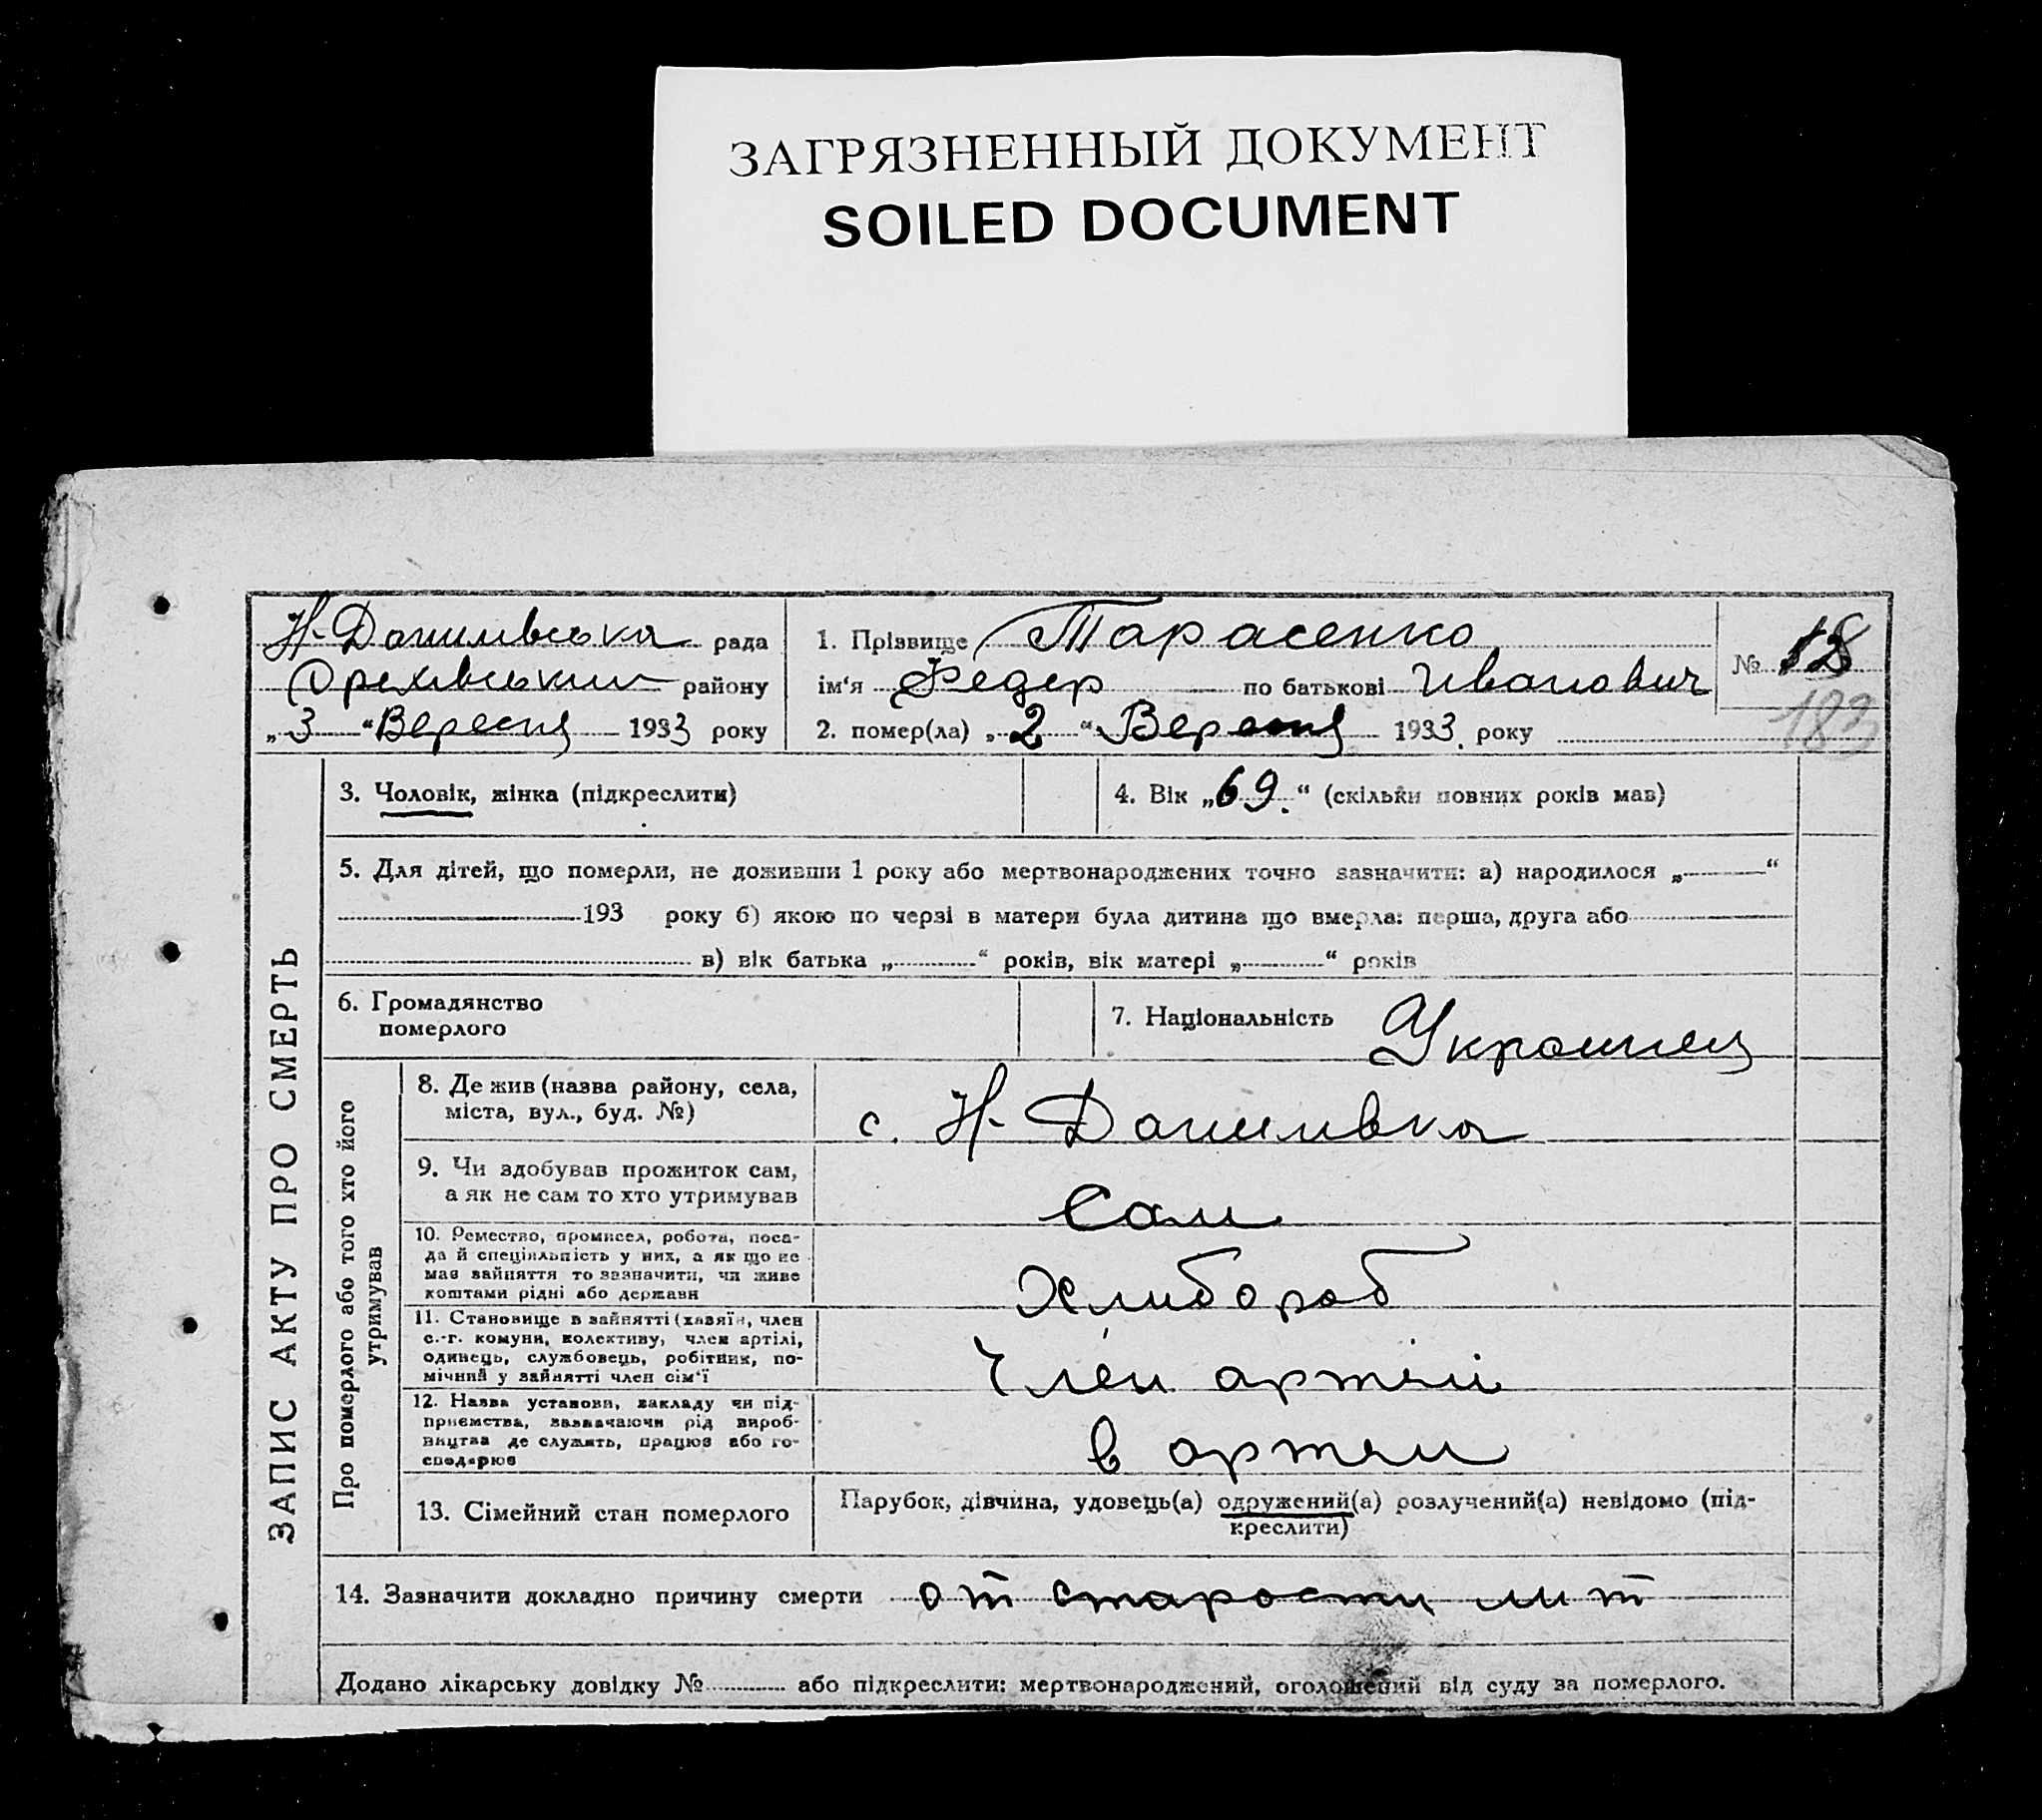 ЗАГРЯЗНЕННЫЙ ДОКУМЕНТ
SOILED DOCUMENT
Н-Данилівська рада
Орехівський району
„3“ Вересня 1933 року
1. Прізвище Тарасенко
ім‘я Федер по батькові Иванович
2. помер(ла) „2“ Вересня 1933. року
№ 18
183
ЗАПИС АКТУ ПРО СМЕРТЬ
3. Чоловік, жінка (підкреслити)
4. Вік „69.“ (скільки повних років мав)
5. Для дітей, що померли, не доживши 1 року або мертвонароджених точно зазначити: а) народилося „ “
193 року б) якою по черзі в матери була дитина що вмерла: перша, друга або
в) вік батька „ “ років, вік матері „ “ років
6. Громадянство
померлого
7. Національність Украинец
Про померлого або того хто його
утримував
8. Де жив (назва району, села,
міста, вул., буд. №)
с. Н-Данилівка
9. Чи здобував прожиток сам,
а як не сам то хто утримував
Сам
10. Ремество, промисел, робота, поса-
да й спеціяльність у них, а як що не
має зайняття то зазначити, чи живе
коштами рідні або держави
Хлибороб
11. Становище в зайнятті (хазяїн, член
с.-г. комуни, колективу, член артілі,
одинець, службовець, робітник, по-
мічний у зайнятті член сім‘ї
Член артілі
12. Назва установи, закладу чи під-
приємства, зазначаючи рід вироб-
ництва де служить, працює або го-
сподарює
в артели
13. Сімейний стан померлого
Парубок, дівчина, удовець(а) одружений(а) розлучений(а) невідомо (під-
креслити)
14. Зазначити докладно причину смерти от старости лит
Додано лікарську довідку № або підкреслити: мертвонароджений, оголошений від суду за померлого.